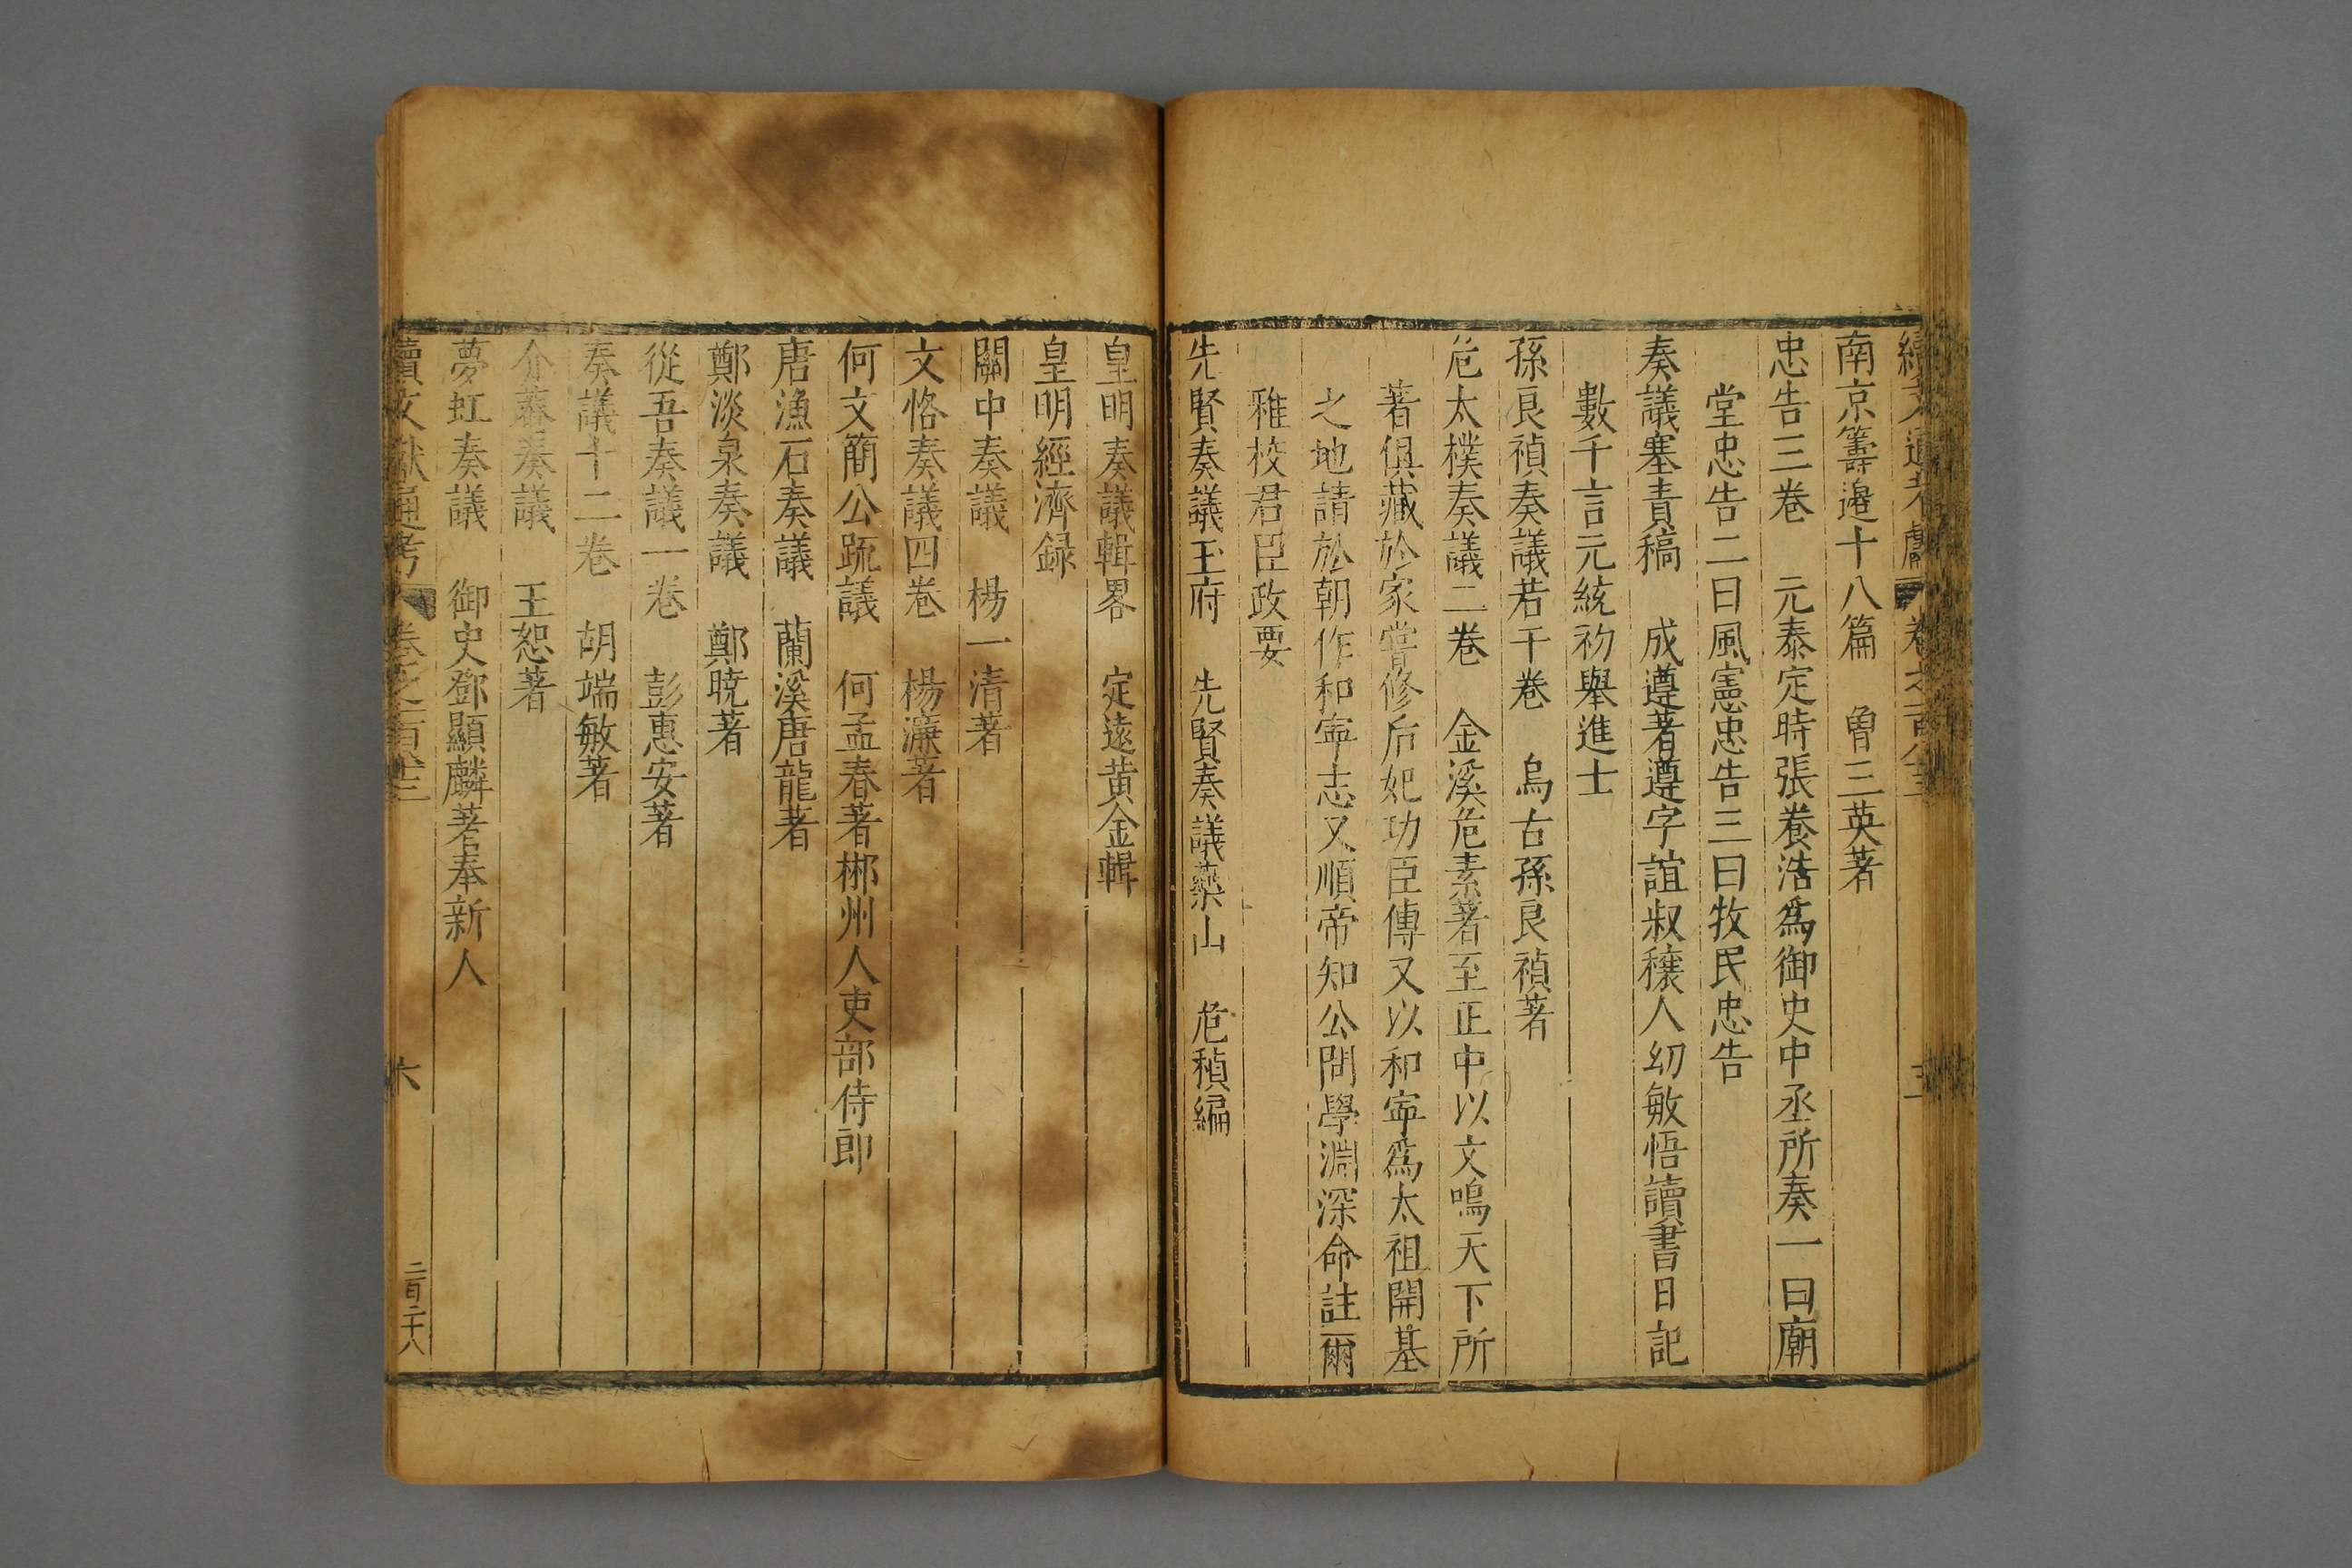 南京籌邊十八篇　魯三英著
忠告三卷　元泰定時張養浩爲御史中丞所奏一曰廟
堂忠告二曰風憲忠告三曰牧民忠告
奏議塞責稿　成遵著遵字誼叔穰人幼敏悟讀書日記
數千言元統初舉進士
孫良禎奏議若干卷　烏古孫良禎著
危太樸奏議二卷　金溪危素著至正中以文鳴天下所
著俱藏於家嘗修后妃功臣傳又以和寧爲太祖開基
之地請於朝作和寧志又順帝知公問學淵深命註爾
雅校君臣政要
先賢奏議玉府　先賢奏議藥山　危稹編
皇明奏議輯畧　定遠黄金輯
皇明經濟録
關中奏議　楊一清著
文恪奏議四卷　楊濂著
何文簡公疏議　何孟春著郴州人吏部侍郎
唐漁石奏議　蘭溪唐龍著
鄭淡泉奏議　鄭曉著
從吾奏議一卷　彭惠安著
奏議十二卷　胡端敏著
介菴奏議　王恕著
夢虹奏議　御史鄧顯麟著奉新人
續文獻通考　卷之一百
六
二百二十八